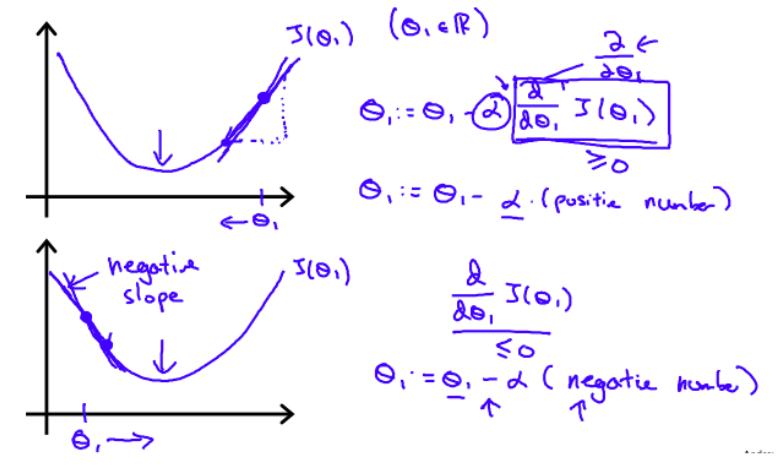 J(θ₁) (θ₁ ∈ ℝ)
∂/∂θ₁ ←
θ₁ := θ₁ - α d/dθ₁ J(θ₁)
≥ 0
← θ₁
θ₁ := θ₁ - α · (positie number)
negative slope
J(θ₁)
d/dθ₁ J(θ₁)
≤ 0
θ₁ := θ₁ - α (negatie number)
θ₁ →